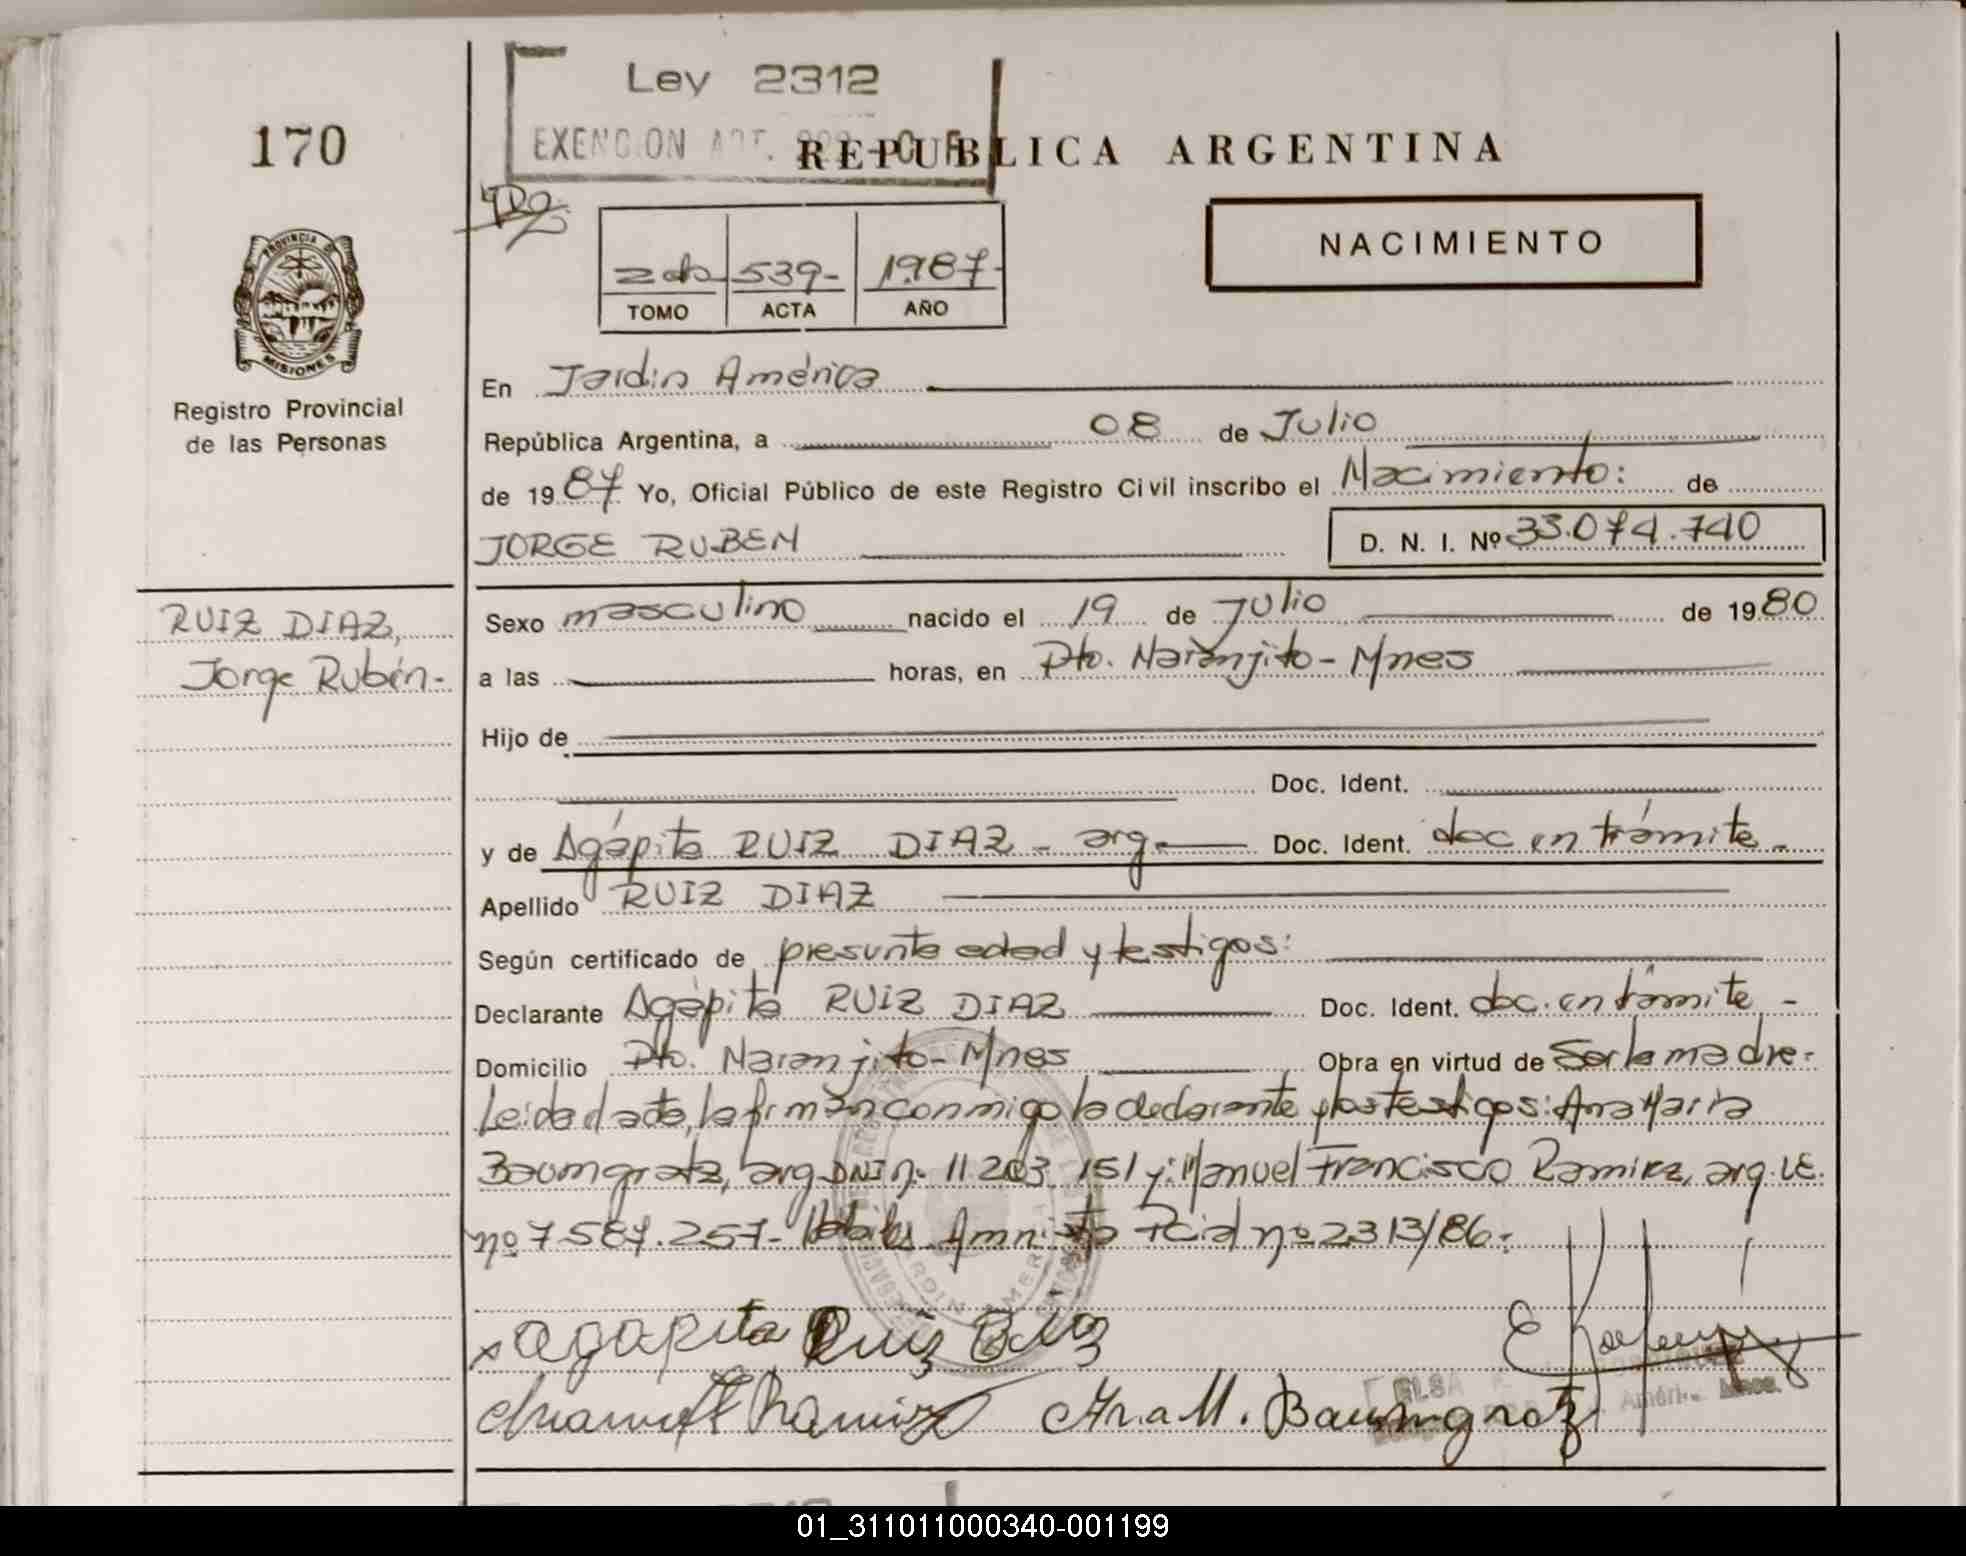 170
Ley 2312
EXENCION ART.
REPUBLICA ARGENTINA
NACIMIENTO
2do 539- 1987-
TOMO ACTA AÑO
PROVINCIA DE
MISIONES
Registro Provincial
de las Personas
En Jardin América
República Argentina, a 08 de Julio
de 1987 Yo, Oficial Público de este Registro Civil inscribo el Nacimiento: de
JORGE RUBEN D. N. I. Nº 33.074.740
RUIZ DIAZ,
Jorge Rubén.-
Sexo masculino nacido el 19 de Julio de 1980
a las horas, en Pto. Naranjito - Mnes
Hijo de
Doc. Ident.
y de Agápita RUIZ DIAZ - arg. Doc. Ident. doc en trámite -
Apellido RUIZ DIAZ
Según certificado de presunta edad y testigos:
Declarante Agápita RUIZ DIAZ Doc. Ident. doc. en trámite -
Domicilio Pto. Naranjito - Mnes Obra en virtud de Ser la madre.-
Leida el acta, la firman conmigo la declarante y los testigos: Ana Maria
Baumgratz, arg. DNI nº 11 203 151 y: Manuel Francisco Ramirez, arg. LE.
nº 7.587.257- Habiles Amnistia Pcial nº 2313/86.-
x agapita Ruiz Diaz
Manuel F Ramirez Ana M. Baumgratz
ELSA
01_311011000340-001199